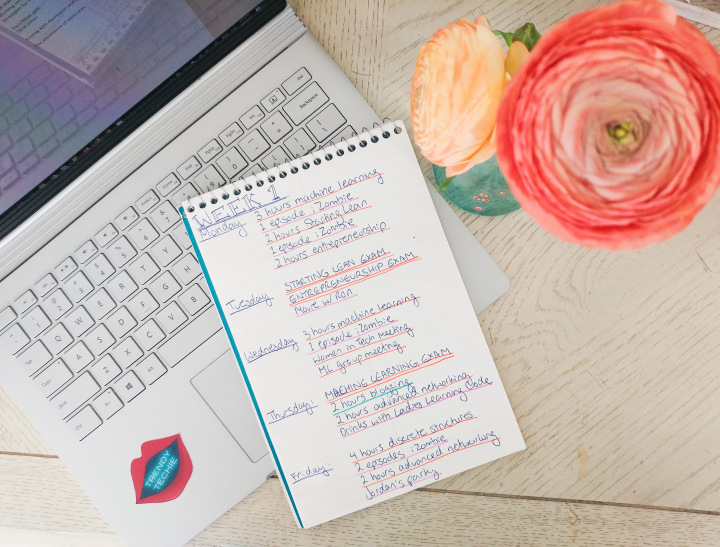 WEEK 1
Monday 3 hours machine learning
1 episode iZombie
2 hours Starting Lean
1 episode iZombie
2 hours entrepreneurship
Tuesday STARTING LEAN EXAM
ENTREPRENEURSHIP EXAM
Movie w/ Ron
Wednesday 3 hours machine learning
1 episode iZombie
Women in Tech Meeting
ML group meeting
Thursday: MACHINE LEARNING EXAM
2 hours blogging
2 hours advanced networking
Drinks with Ladies Learning Code
Friday 4 hours discrete structures
2 episodes iZombie
2 hours advanced networking
Jordan's party
TRENDY
TECHIE
Backspace
Tab
Q W E R T Y
Caps
A S D F G H
Shift
Z X C V B
Ctrl
Fn
Alt
Del